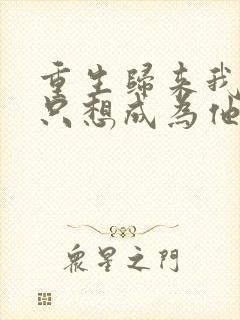 重生歸來我
只想成為他
眾星之門